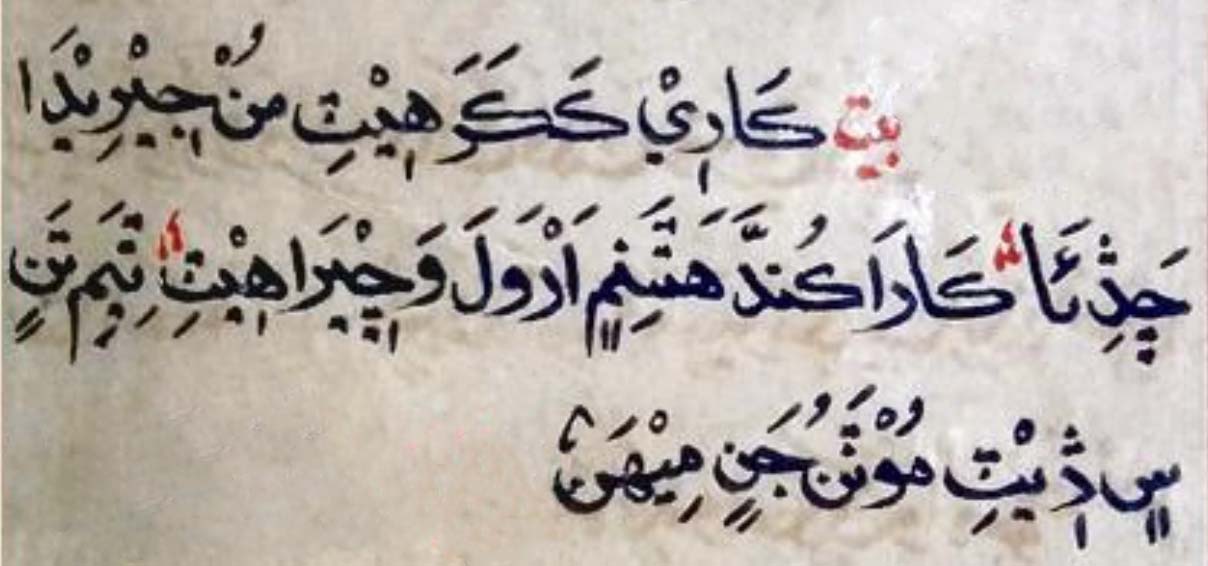 بيت كَارِيْ كَكَوَ هِيْتِ مُنْ جِيْرِيْدَا
جَڎِئَا كَارَا كُنڊَ هَتَنِمٍ اَرْوَلَ وَجِيْرَا هِيْتِ تِيَمِ تَنٍ
سٍ ڎِيْتِ مُوْتَنُ جَنٍ مِيْهَن